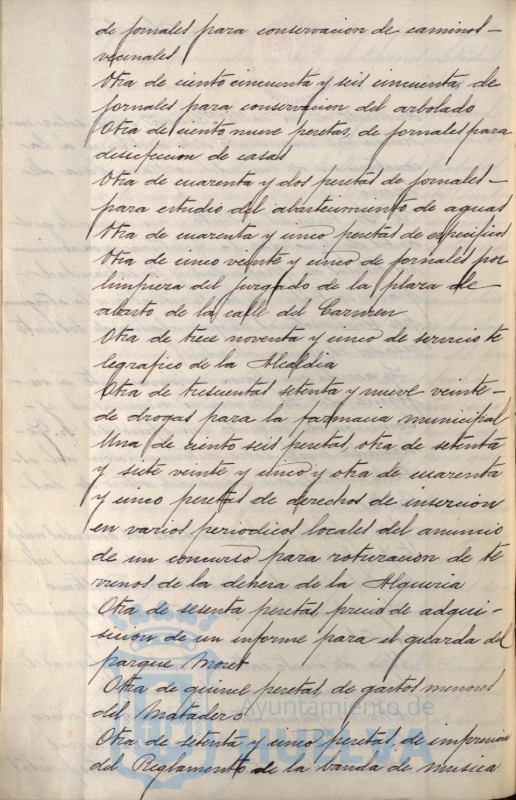 de jornales para conservacion de caminos
vecinales
Otra de ciento cincuenta y seis cincuenta, de
jornales para conservacion del arbolado
Otra de ciento nueve pesetas, de jornales para
desifeccion de casas
Otra de cuarenta y dos pesetas de jornales
para estudio del abastecimiento de aguas
Otra de cuarenta y cinco pesetas de especificos
Otra de cinco veinte y cinco de jornales por
limpieza del juzgado de la plaza de
abasto de la calle del Carmen
Otra de trece noventa y cinco de servicio te
legrafico de la Alcaldia
Otra de trescientas setenta y nueve veinte
de drogas para la farmacia municipal
Una de ciento seis pesetas, otra de setenta
y siete veinte y cinco y otra de cuarenta
y cinco pesetas de derechos de insercion
en varios periodicos locales del anuncio
de un concurso para roturacion de te
rrenos de la dehesa de la Alqueria
Otra de sesenta pesetas, precio de adqui-
sicion de un informe para el guarda del
parque Moret
Otra de quince pesetas, de gastos menores
del Matadero
Otra de setenta y cinco pesetas, de impresion
del Reglamento de la banda de musica
Ayuntamiento de
HUELVA